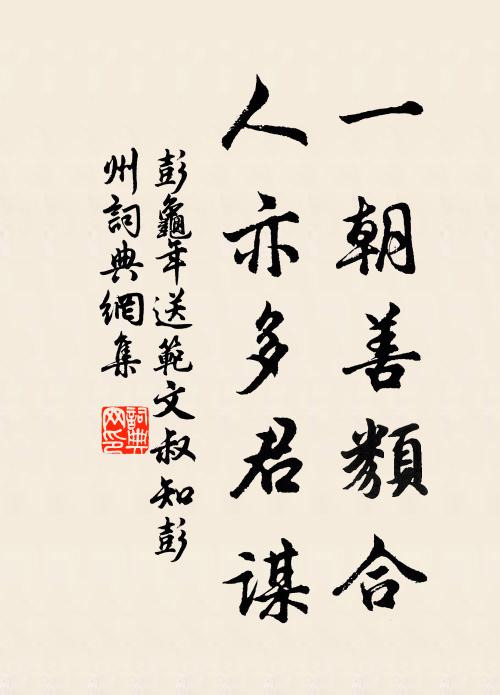 一朝善類合
人亦多君謀
彭龜年送範文叔知彭
州詞典網集
詞典网印